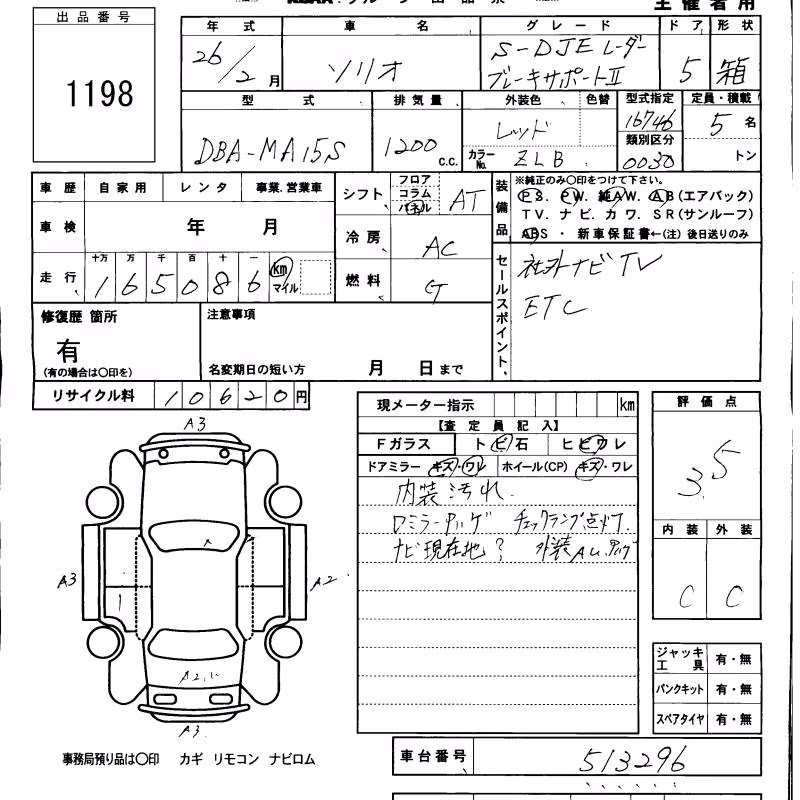 主催者用
出品番号
1198
年式 車名 グレード ドア 形状
26/2月 ソリオ S-DJE レーダーブレーキサポートⅡ 5 箱
型式 排気量 外装色 色替 型式指定 定員・積載
DBA-MA15S 1200 C.C. レッド 16746 5名
類別区分
カラーNo. ZLB 0030 トン
車歴 自家用 レンタ 事業.営業車
車検 年 月
走行 十万 万 千 百 十 一
165086 km マイル
シフト フロア コラム パネル AT
冷房 AC
燃料 G
装備品
※純正のみ〇印をつけて下さい。
PS. PW. 純AW. AB(エアバック)
TV. ナビ. カワ. SR(サンルーフ)
ABS ・ 新車保証書←(注) 後日送りのみ
セールスポイント
社外ナビ TV
ETC
修復歴 箇所
有
(有の場合は〇印を)
注意事項
名変期日の短い方 月 日まで
リサイクル料 10620円
現メーター指示 km
【査定員記入】
Fガラス トビ石 ヒビワレ
ドアミラー キズ・ワレ ホイール(CP) キズ・ワレ
内装汚れ.
ロミラーキハゲ チェックランプ点灯.
ナビ現在地? 外装AU.
評価点
3.5
内装 外装
C C
A3
A3
A2
A2
A3
ジャッキ工具 有・無
パンクキット 有・無
スペアタイヤ 有・無
事務局預り品は〇印 カギ リモコン ナビロム
車台番号 513296